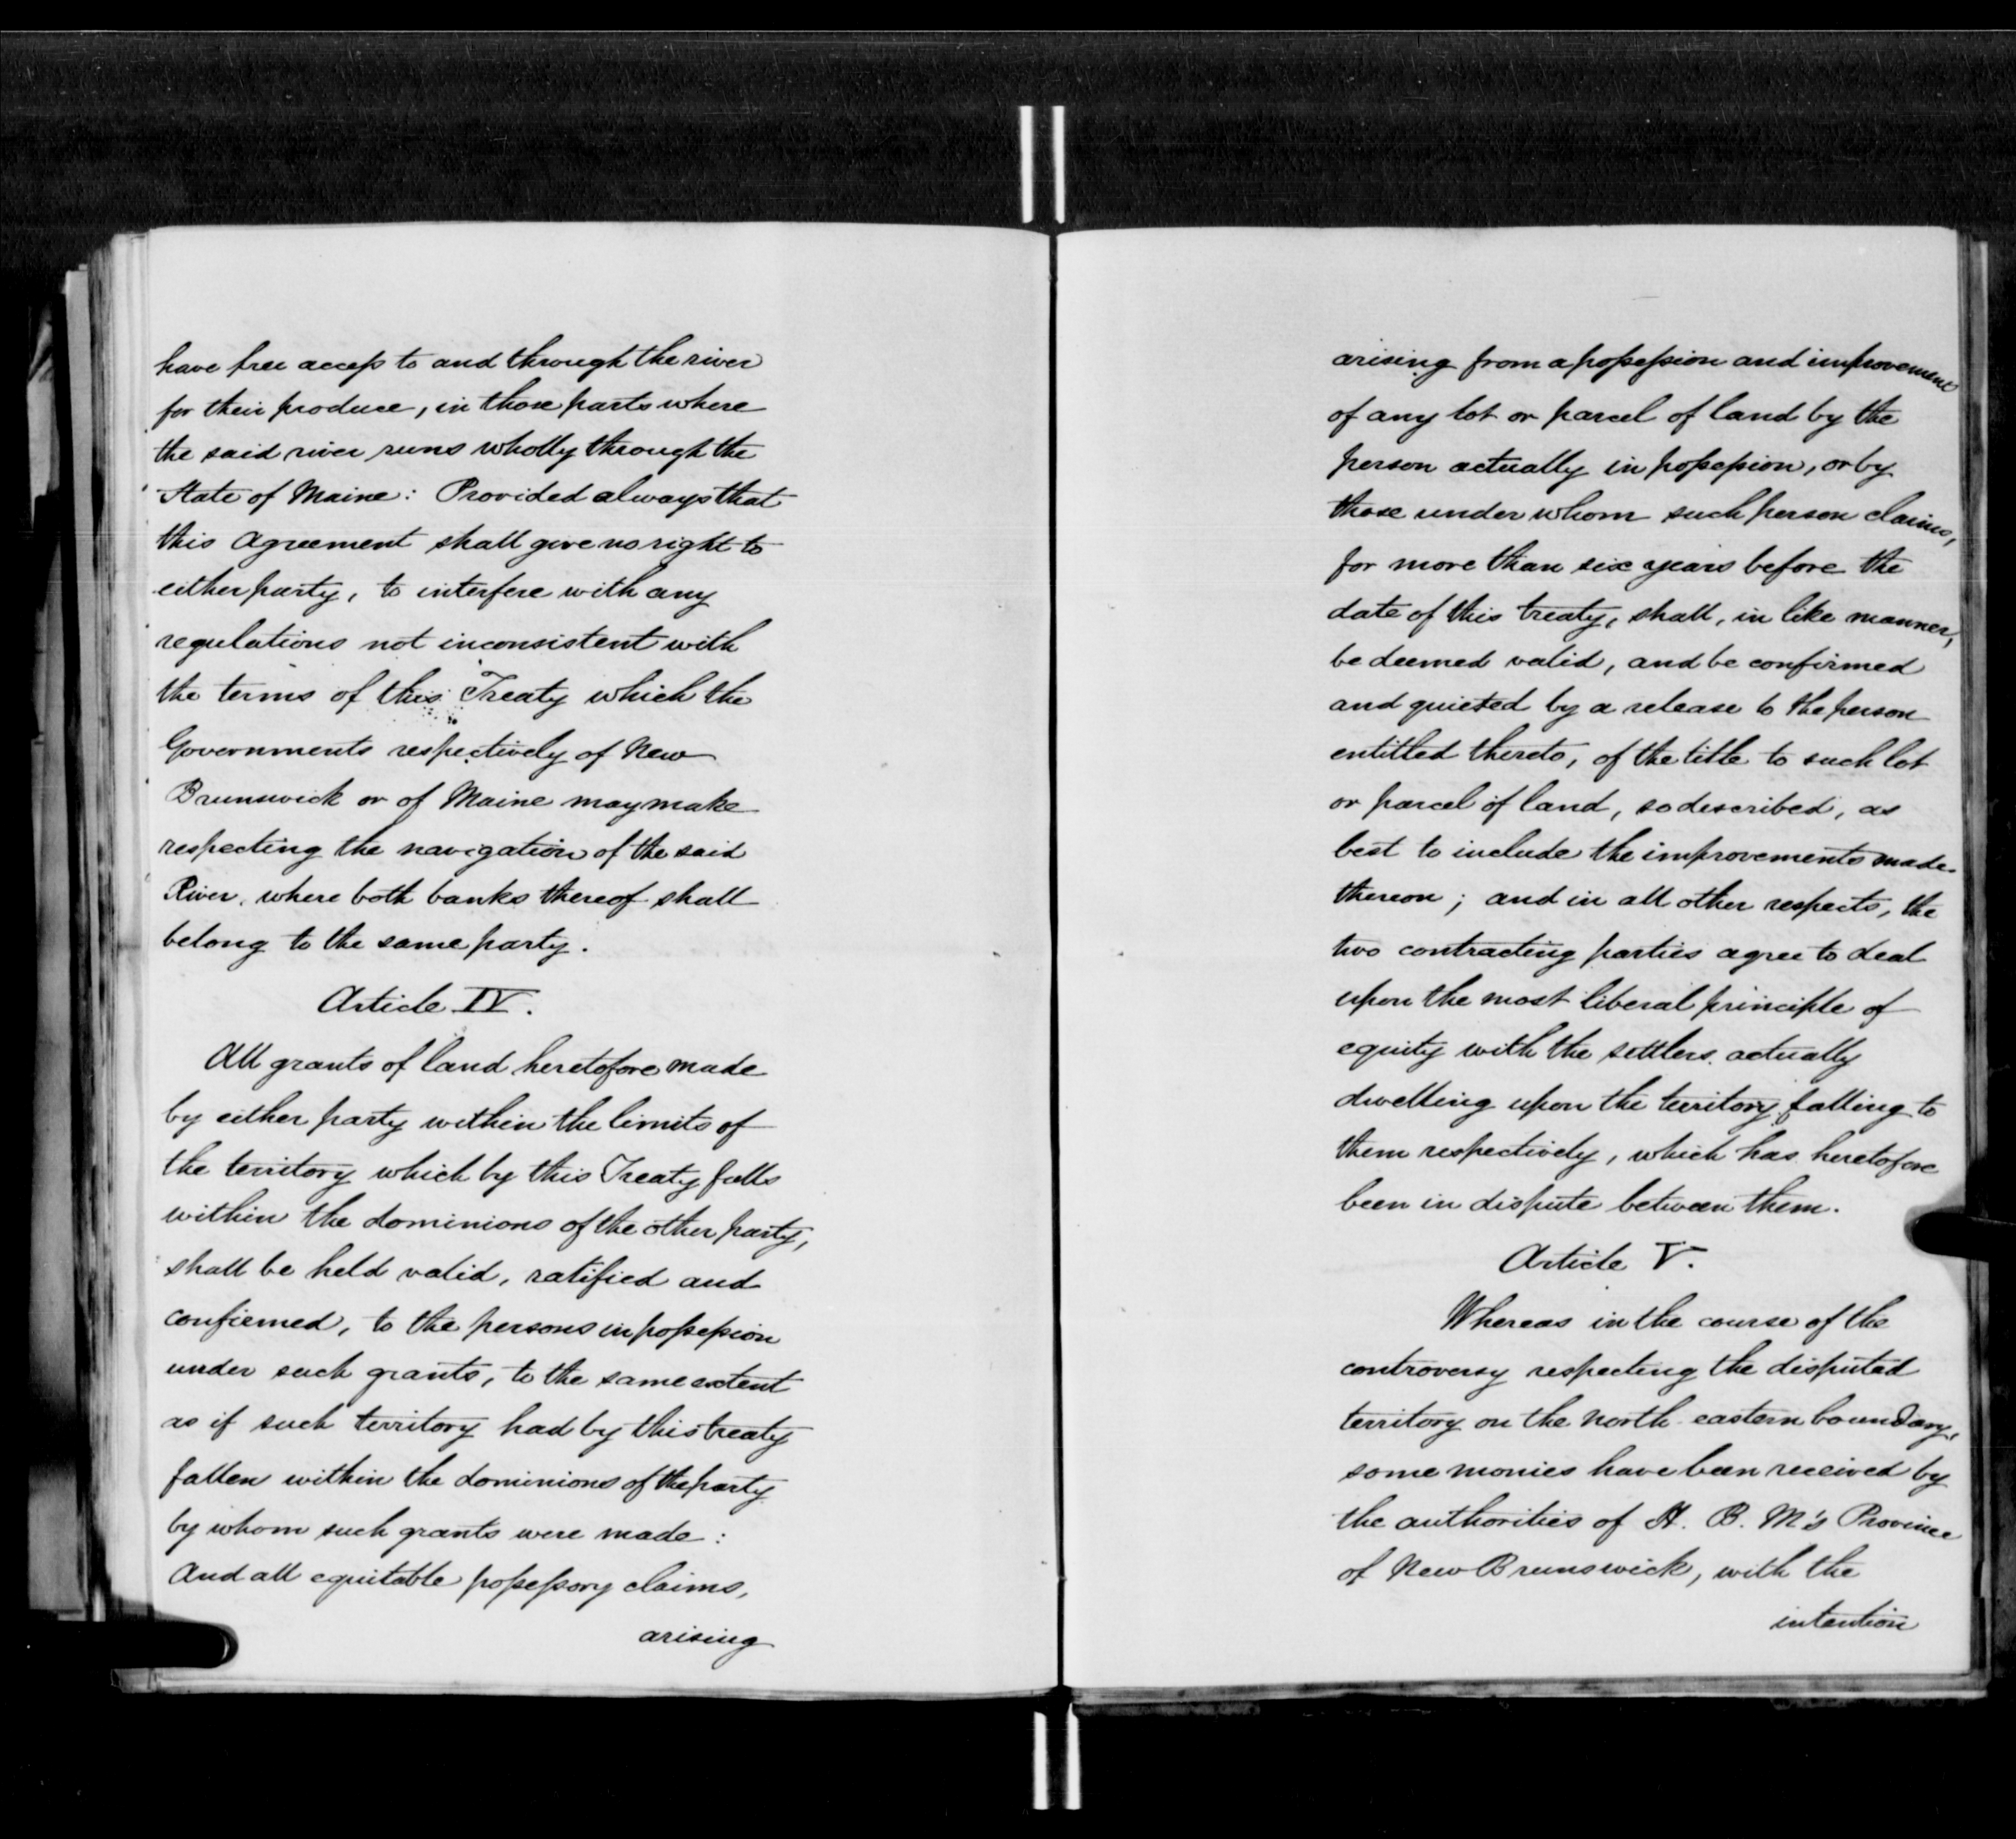 have free access to and through the river
for their produce, in those parts where
the said river runs wholly through the
State of Maine: Provided always that
this agreement shall give no right to
either party, to interfere with any
regulations not inconsistent with
the terms of this Treaty which the
Governments respectively of New
Brunswick or of Maine may make
respecting the navigation of the said
River, where both banks thereof shall
belong to the same party.
Article IV.
All grants of land heretofore made
by either party within the limits of
the territory which by this Treaty falls
within the dominions of the other party,
shall be held valid, ratified and
confirmed, to the persons in possession
under such grants, to the same extent
as if such territory had by this treaty
fallen within the dominions of the party
by whom such grants were made:
And all equitable possessory claims,
arising
arising from a possession and improvement
of any lot or parcel of land by the
person actually in possession, or by
those under whom such person claims,
for more than six years before the
date of this treaty, shall, in like manner,
be deemed valid, and be confirmed
and quieted by a release to the person
entitled thereto, of the title to such lot
or parcel of land, so described, as
best to include the improvements made
thereon; and in all other respects, the
two contracting parties agree to deal
upon the most liberal principle of
equity with the settlers actually
dwelling upon the territory falling to
them respectively, which has heretofore
been in dispute between them.
Article V.
Whereas in the course of the
controversy respecting the disputed
territory on the north eastern boundary,
some monies have been received by
the authorities of H. B. M's Province
of New Brunswick, with the
intention